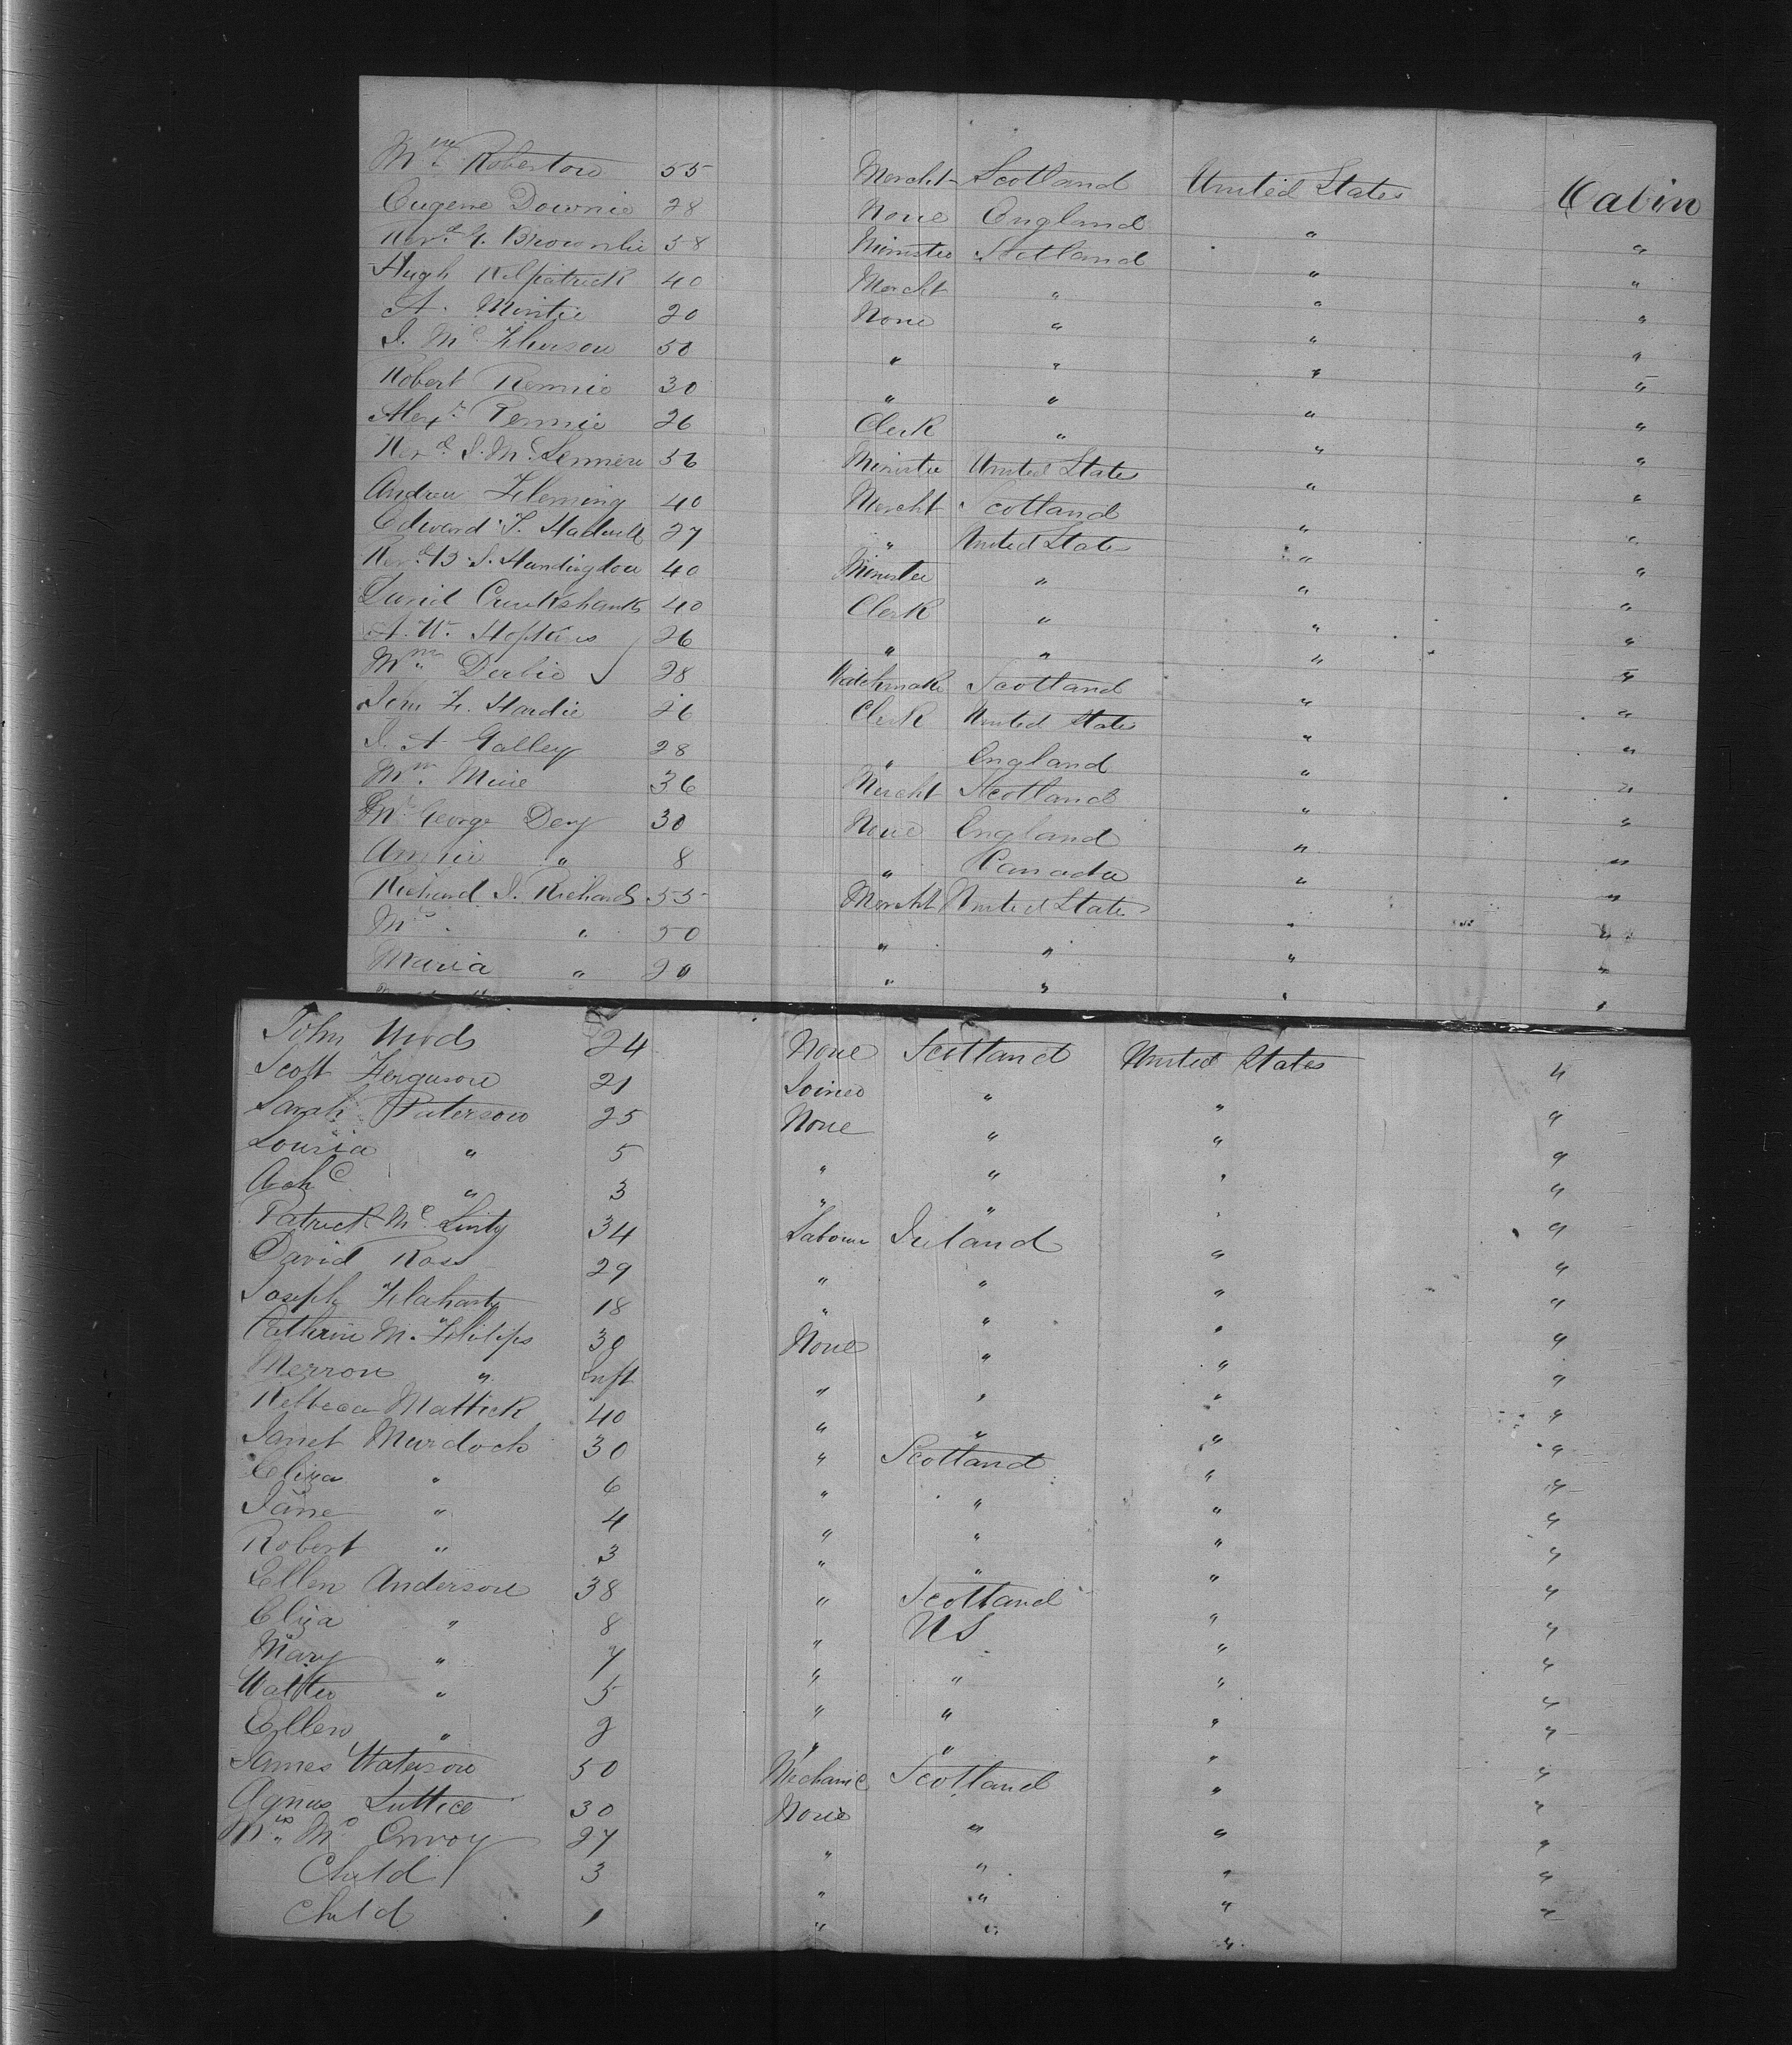 Wm Robertson 55 Mercht Scotland United States Cabin
Eugene Downie 28 None England " "
Revd G. Brownlie 38 Minister Scotland " "
Hugh Kilpatrick 40 Mercht " " "
A. Mintie 20 None " " "
J. Mc 50 " " " "
Robert Rennie 30 " " " "
Alexr Rennie 26 Clerk " " "
Revd J. Mc 56 Minister United States " "
Andrew Fleming 40 Mercht Scotland " "
Edward T. 27 " United States " "
Revd B. S. Hundingdon 40 Minister " " "
David Cruikshank 40 Clerk " " "
A. W. Hopkins 26 " " " "
Wm Derbie 28 Watchmaker Scotland " "
John F. Hardie 26 Clerk United States " "
J. A Galley 28 " England " "
Wm Muie 36 Mercht Scotland " "
George Dey 30 None England " "
Annie " 8 " Canada " "
Richard J. Richards 55 Mercht United States " "
Mrs " 50 " " " "
Maria " 20 " " " "
John Woods 24 None Scotland United States "
Scott Ferguson 21 Joiner " " "
Sarah Paterson 25 None " " "
Lousia " 5 " " " "
Arch " 3 " " " "
Patrick Mc Linty 34 Labour Ireland " "
David Ross 29 " " " "
Joseph Flaharty 18 " " " "
Cathrine M. Philips 30 None " " "
Merron " Inft " " " "
Rebbeca Mattick 40 " " " "
Janet Murdoch 30 " Scotland " "
Eliza " 6 " " " "
Jane " 4 " " " "
Robert " 3 " " " "
Ellen Anderson 38 " Scotland " "
Eliza " 8 " US " "
Mary " 7 " " " "
Walter " 5 " " " "
Ellen " 2 " " " "
James Waterson 50 Mechanic Scotland " "
Agnes Luttice 30 None " " "
Mrs Mc Onvoy 27 " " " "
Child 3 " " " "
Child 1 " " " "